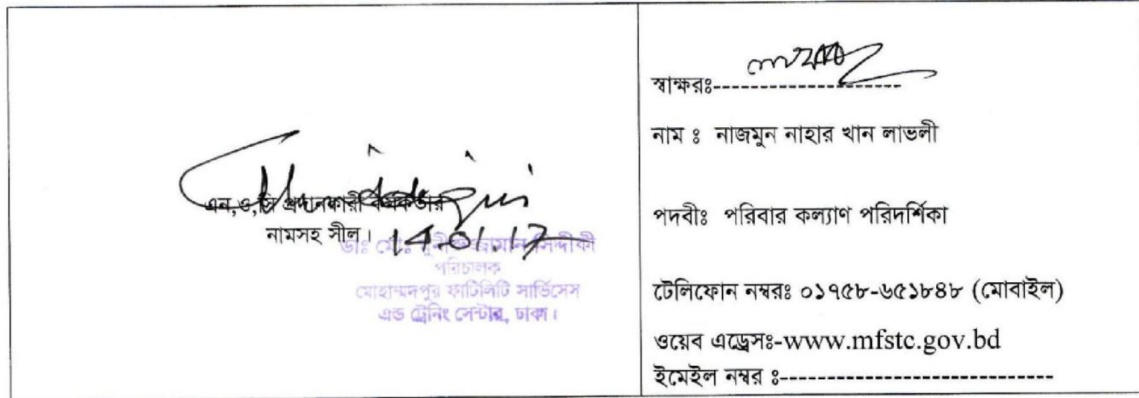 এন,ও,সি প্রদানকারী কর্মকর্তার
নামসহ সীল।
14.01.17
ডাঃ মোঃ মুনীরুজ্জামান সিদ্দীকী
পরিচালক
মোহাম্মদপুর ফার্টিলিটি সার্ভিসেস
এন্ড ট্রেনিং সেন্টার, ঢাকা।
স্বাক্ষরঃ--------------------
নাম ঃ নাজমুন নাহার খান লাভলী
পদবীঃ পরিবার কল্যাণ পরিদর্শিকা
টেলিফোন নম্বরঃ ০১৭৫৮-৬৫১৮৪৮ (মোবাইল)
ওয়েব এড্রেসঃ-www.mfstc.gov.bd
ইমেইল নম্বর ঃ-----------------------------